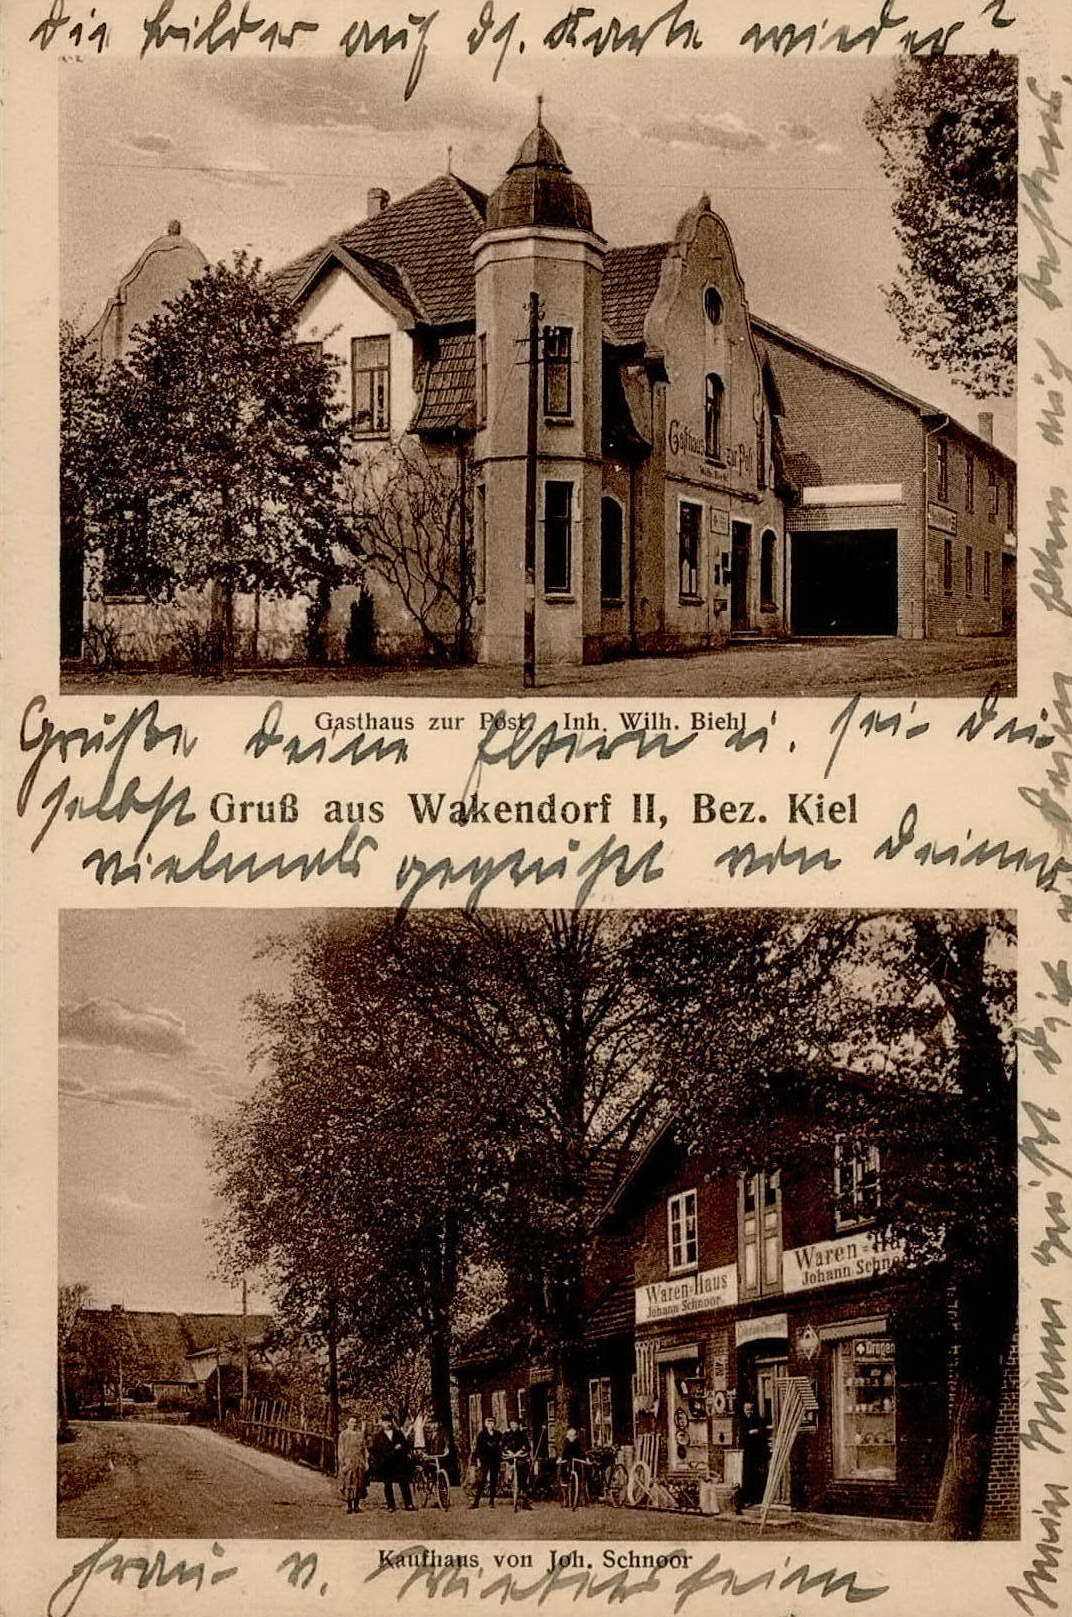 die Bilder auf ds. Karte wieder?
Gasthaus zur Post
Gasthaus zur Post, Inh. Wilh. Biehl
Grüße Deine Eltern u. sei Du
selbst
Gruß aus Wakendorf II, Bez. Kiel
vielmals gegrüßt von Deiner
Waren-Haus
Johann Schnoor
Waren-Ha
Johann Schnoor
Drogen
Kaufhaus von Joh. Schnoor
Frau v.
Mein Mann grüßt Dich u. Deine